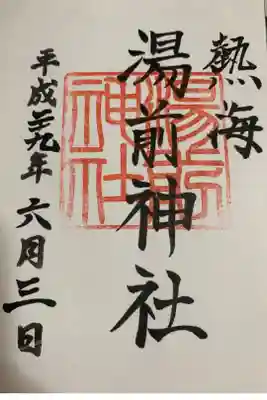 熱海
湯前神社
平成二十九年六月三日